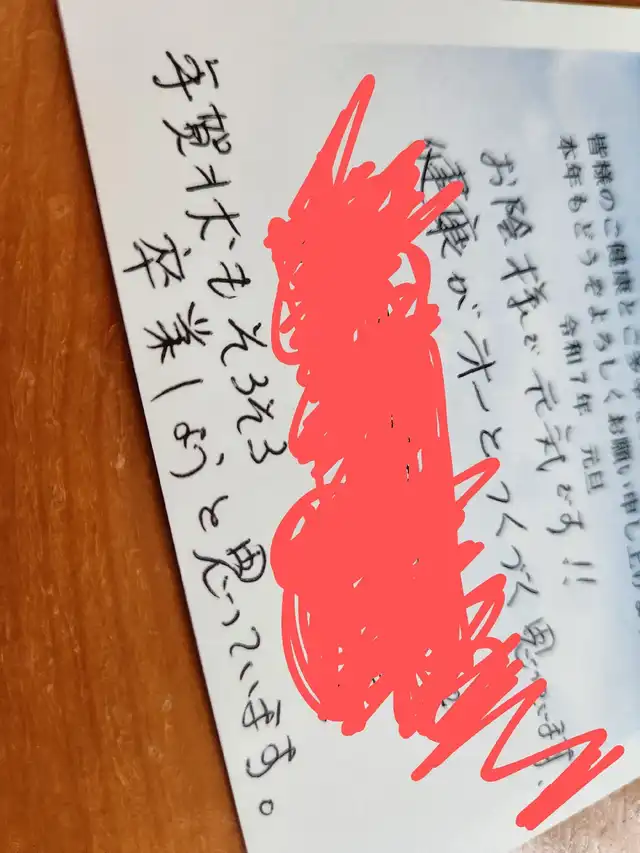 皆様のご健康とご多
本年もどうぞよろしくお願い申し上げま
令和７年 元旦
お陰様で元気です!!
健康が第一とつくづく思っています。
年賀状もそろそろ
卒業しようと思っています。